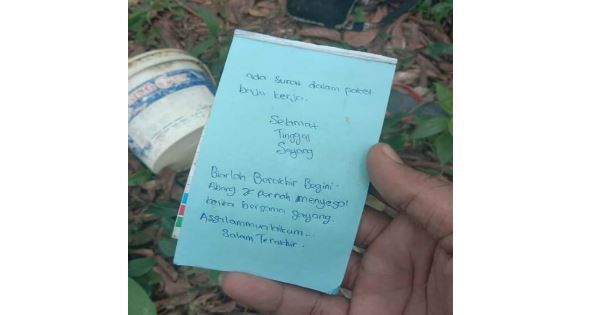 ada surat dalam poket
baju kerja.
Selamat
Tinggal
Sayang
Biarlah Berakhir Begini.
Abang x pernah menyesal
bersama sayang.
Assalammualaikum...
Salam Terakhir.